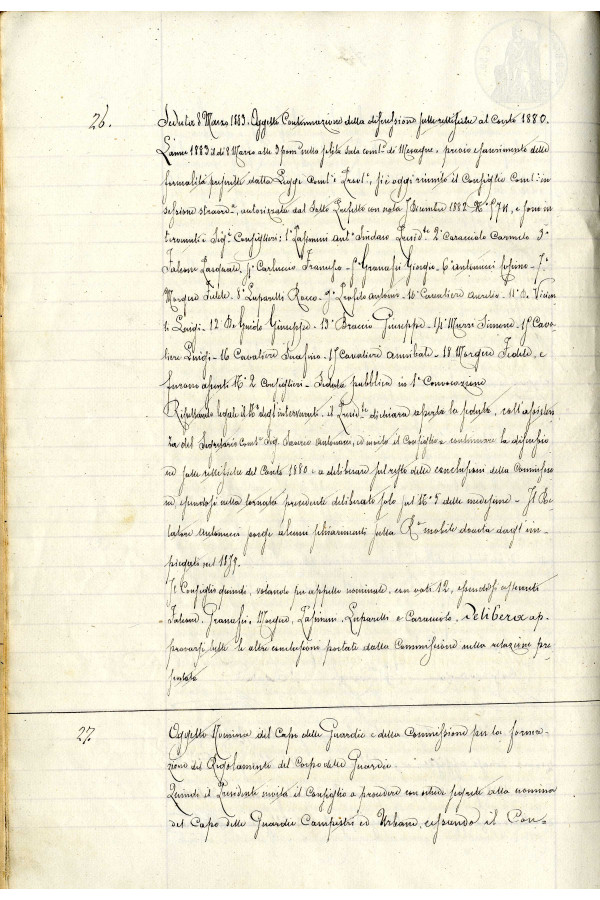 26.
Seduta 8 Marzo 1883. Oggetto Continuazione della discussione sulle rettifiche al Conto 1880.
L'anno 1883 il dì 8 Marzo alle 3 pom. nella solita sala com.le di Mesagne, previo esaurimento delle
formalità prescritte dalla Legge Com.le e Prov.le, si è oggi riunito il Consiglio Com.le in
sessione straord.a, autorizzata dal Sotto Prefetto con nota 7 Dicembre 1882 N.o 5711, e sono in-
tervenuti i Sig.ri Consiglieri: 1.o Tassinari Ant.o Sindaco Presid.te 2.o Caracciolo Carmelo 3.o
Falcone Pasquale, 4.o Carluccio Francesco - 5.o Granafei Giorgio - 6.o Antonucci - 7.o
Morgese Fedele - 8.o Luparelli Rocco - 9.o Profilo Antonio - 10.o Cavaliere Aurelio - 11.o
Luigi - 12 De Guido Giuseppe - 13.o Braccio Giuseppe - 14.o Murri Simone - 15.o Cava-
liere Luigi - 16 Cavaliere Serafino - 17 Cavaliere Annibale - 18 Morgese Fedele, e
furono assenti N.o 2 Consiglieri - Seduta pubblica in 1.a Convocazione
Risultando legale il N.o degl'intervenuti, il Presid.te dichiara aperta la seduta, coll'assisten-
za del Segretario Com.le Sig. Saverio Antonucci, ed invita il Consiglio a continuare la discussio-
ne sulle rettifiche del Conto 1880 e a deliberare sul resto delle conclusioni della Commissio-
ne, essendosi nella tornata precedente deliberato solo sul N.o 5 delle medesime - Il Re-
latore Antonucci porge alcuni schiarimenti sulla R.a mobile dovuta dagl'im-
piegati nel 1879.
Il Consiglio quindi, votando per appello nominale, con voti 12, essendosi astenuti
Falcone, Granafei, Morgese, Tassinari, Luparelli e Caracciolo, Delibera ap-
provarsi tutte le altre conclusioni portate dalla Commissione nella relazione pre-
sentata
27.
Oggetto Nomina del Capo delle Guardie e della Commissione per la forma-
zione del Regolamento del Corpo delle Guardie.
Quindi il Presidente invita il Consiglio a procedere con schede segrete alla nomina
del Capo delle Guardie Campestri ed Urbane, essendo il Con-